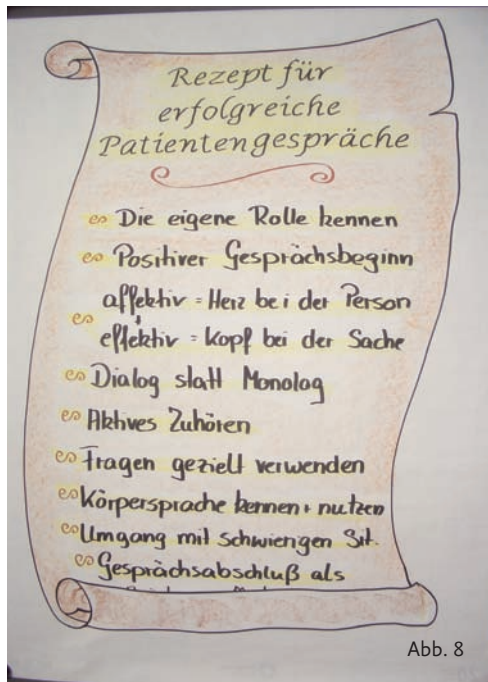 Rezept für
erfolgreiche
Patientengespräche
Die eigene Rolle kennen
Positiver Gesprächsbeginn
affektiv = Herz bei der Person
effektiv = Kopf bei der Sache
Dialog statt Monolog
Aktives Zuhören
Fragen gezielt verwenden
Körpersprache kennen + nutzen
Umgang mit schwierigen Sit.
Gesprächsabschluß als
Abb. 8